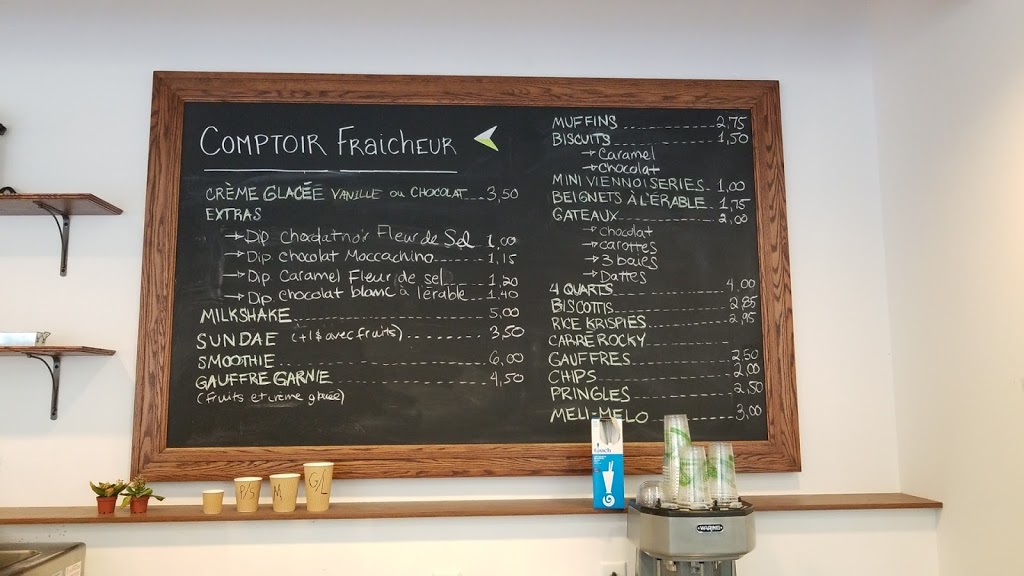 COMPTOIR FRAICHEUR
CRÈME GLACÉE VANILLE OU CHOCOLAT 3,50
EXTRAS
→ Dip chocolat noir Fleur de Sel 1,00
→ Dip chocolat Moccachino 1,15
→ Dip Caramel Fleur de sel 1,20
→ Dip chocolat blanc à l'érable 1,40
MILKSHAKE 5,00
SUNDAE (+1$ avec fruits) 3,50
SMOOTHIE 6,00
GAUFFRE GARNIE 4,50
(fruits et crème glacée)
MUFFINS 2,75
BISCUITS 1,50
→ Caramel
→ Chocolat
MINI VIENNOISERIES 1,00
BEIGNETS À L'ÉRABLE 1,75
GATEAUX 2,00
→ chocolat
→ carottes
→ 3 baies
→ Dattes
4 QUARTS 4,00
BISCOTTIS 2,85
RICE KRISPIES 2,95
CARRÉ ROCKY
GAUFFRES 2,50
CHIPS 2,00
PRINGLES 2,50
MELI-MELO 3,00
P/S
M
G/L
WARING